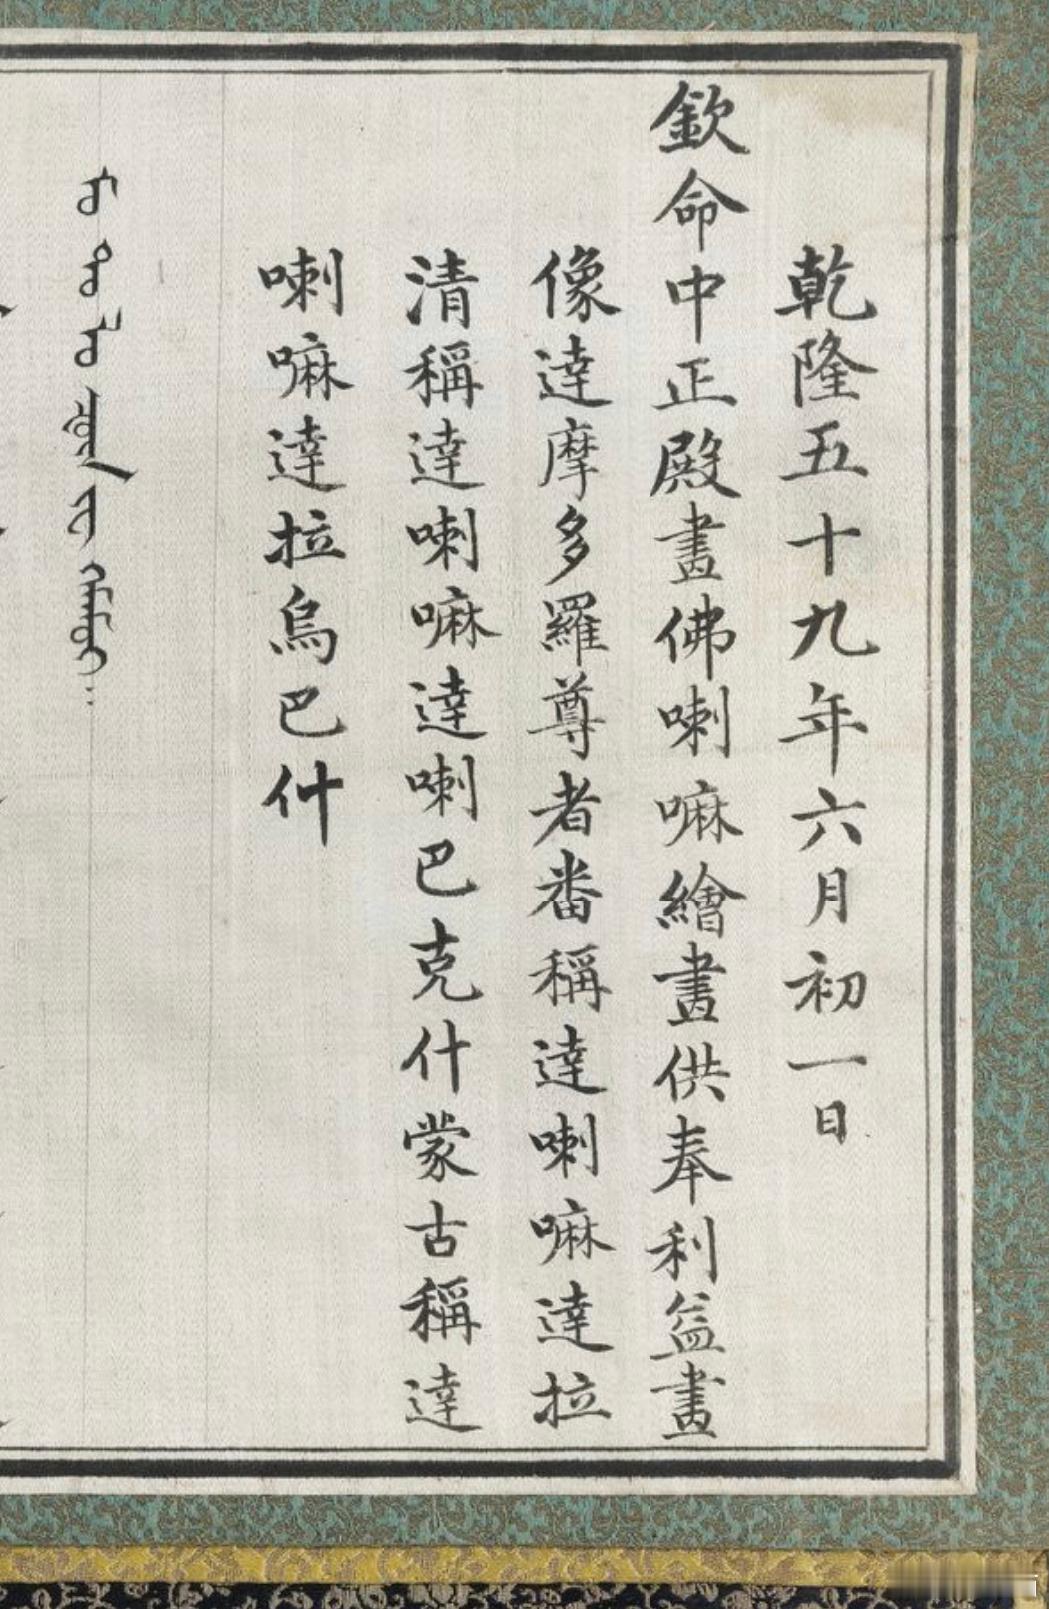 乾隆五十九年六月初一日
欽命中正殿畫佛喇嘛繪畫供奉利益畫
像達摩多羅尊者番稱達喇嘛達拉
清稱達喇嘛達喇巴克什蒙古稱達
喇嘛達拉烏巴什